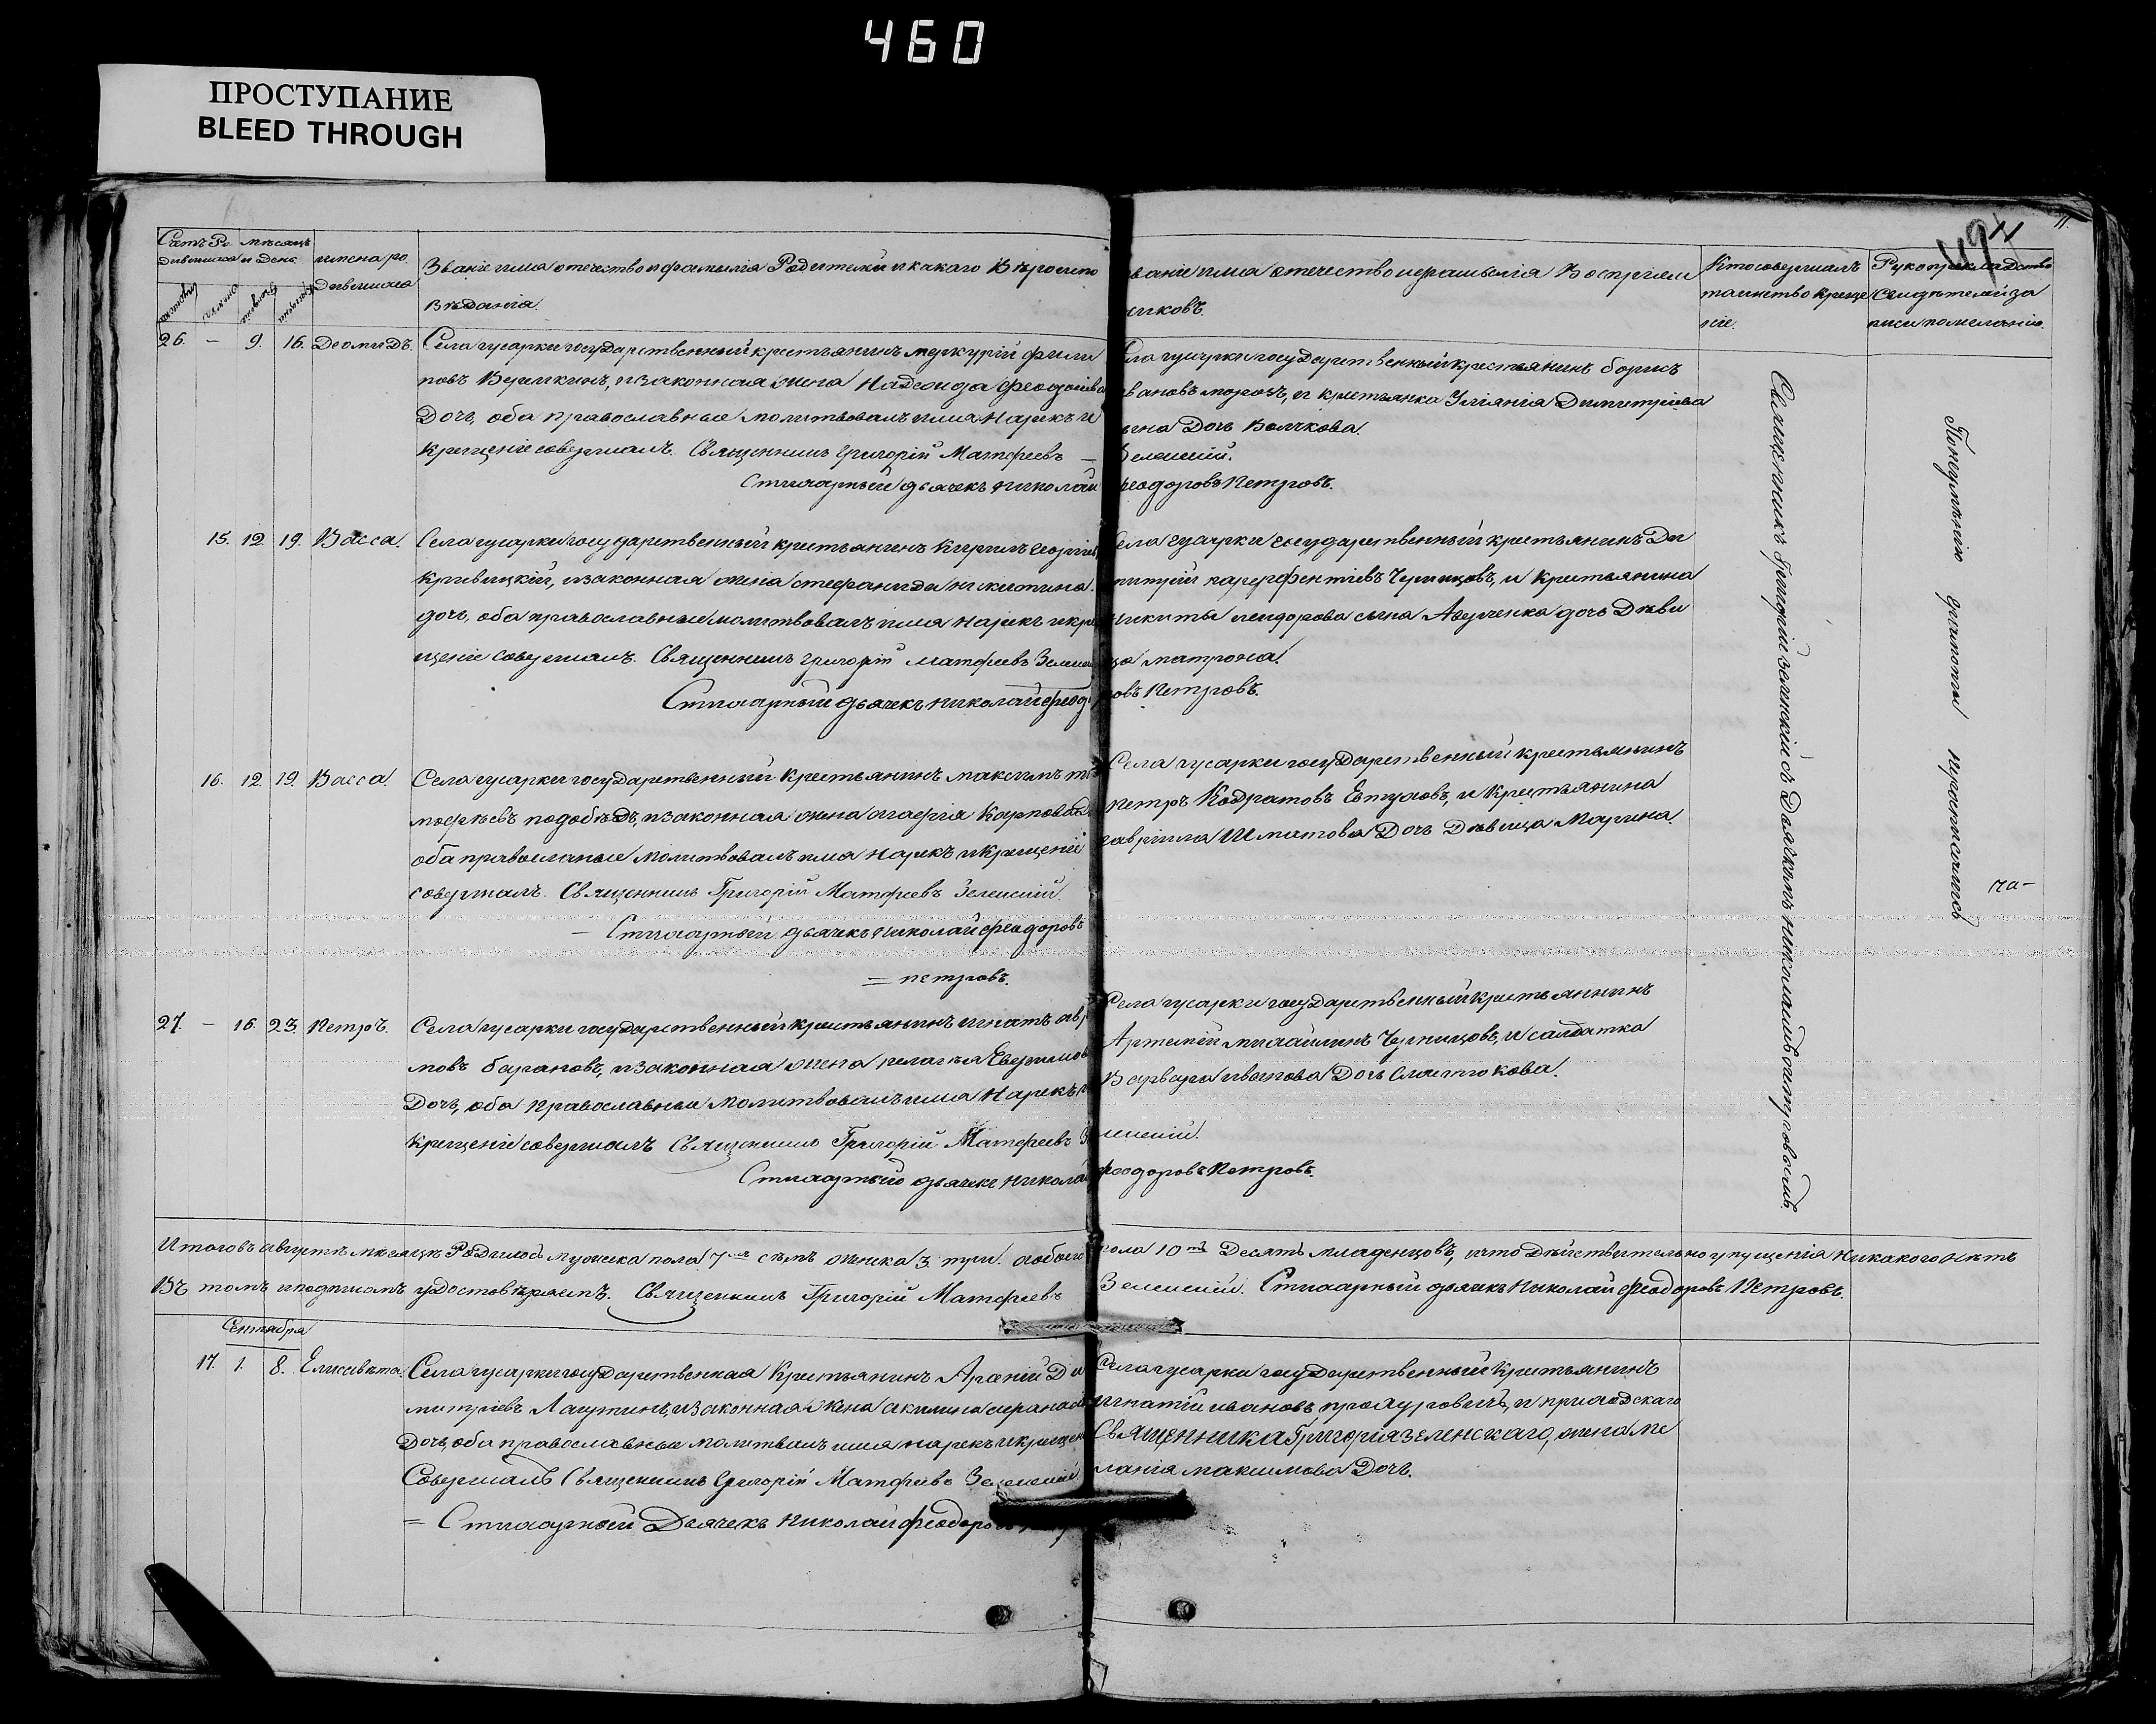 460
ПРОСТУПАНИЕ
BLEED THROUGH
Счетъ Ро мѣсяцъ
дившихся и День
имена ро
Дившихся
Званіе имя отечество и фамилія Родителей и какаго Вѣроиспо
вѣданія.
званіе имя отечество и фамилія Воспріем
никовъ.
Кто совершалъ
таинство креще
ніе.
Рукоприкладство
Свидѣтелей за
писи по желанію.
26. – 9. 16. Деомидъ. Села гусарки государственный крестьянинъ меркурій фили
повъ Веремкинъ, и законная жена Надежда феодосіева
Дочь, оба православные молитвовалъ имя Нарекъ и
крещеніе совершалъ. Священникъ Григорій Матфеевъ –
Стихарный дьячекъ Николай
Села гусарки государственный крестьянинъ борисъ
ивановъ морозъ, и крестьянка Уліянія Димитріева
Дочь Волчкова.
Зеленскій.
феодоровъ Петровъ.
15. 12 19. Васса. Села гусарки государственный крестьянинъ Кирилъ Георгіев
Кривицкій, и законная жена стефанида никитина
дочь, оба православные молитвовалъ имя нарекъ и кре
щеніе совершалъ. Священникъ Григорій матфеевъ Зелен
Стихарный дьячекъ николай феодо
Села гусарки государственный крестьянинъ Ди
митрій парфентіевъ Чернцовъ, и крестьянина
никиты сидорова сына Аверченка дочь Дѣви
ца матрона.
ровъ Петровъ.
16. 12. 19. Васса. Села гусарки государственный крестьянинъ максимъ ти
мофѣевъ подобѣдъ, и законная жена агафія Карпова
оба православные молитвовалъ имя нарекъ и крещеніе
совершалъ. Священникъ Григорій Матфеевъ Зеленскій.
– Стихарный дьячекъ Николай феодоровъ
= петровъ.
Села гусарки государственный крестьянинъ
петръ Кодратовъ Евтуховъ, и крестьянина
гавріила Шматова Дочь Дѣвица Марина.
27. – 16. 23. Петръ. Села гусарки государственный крестьянинъ игнатъ авра
мовъ барановъ, и законная жена пелагія
Дочь, оба православные молитвовалъ имя Нарекъ и
крещеніе совершалъ Священникъ Григорій Матфеевъ З
Стихарный дьячекъ никола
Села гусарки государственный крестьянинъ
Артемій михайлинъ Чернцовъ, и салдатка
Варвара иванова Дочь Сластюкова.
еленскій.
феодоровъ Петровъ.
Священникъ Григорій зеленскій съ Дьячкомъ николаемъ петровымъ.
По неумѣнію грамоты неподписались
Итого въ августѣ мѣсяцѣ Родилось мужска пола 7 семь женска 3 три. обоего пола 10 Десять младенцовъ, и что Дѣйствительно упущенія никакого нѣтъ
Въ томъ и подписомъ удостовѣряемъ. Священникъ Григорій Матфеевъ Зеленскій. Стихарный дьячекъ Николай Феодоровъ Петровъ.
Сентября
17. 1. 8. Елисавѣта. Села гусарки государственная Крестьянинъ Арсеній Ди
митріевъ Лаутинъ, и законная жена акилина
Дочь, оба православные имя нарекъ и крещен
Совершалъ Священникъ Григорій Матфеевъ Зеленскій
= Стихарный Дьячекъ Николай феодоровъ
Села гусарки государственный Крестьянинъ
игнатій ивановъ и приходскаго
Священника Григорія зеленскаго, жена Ме
ланія максимова Дочь.